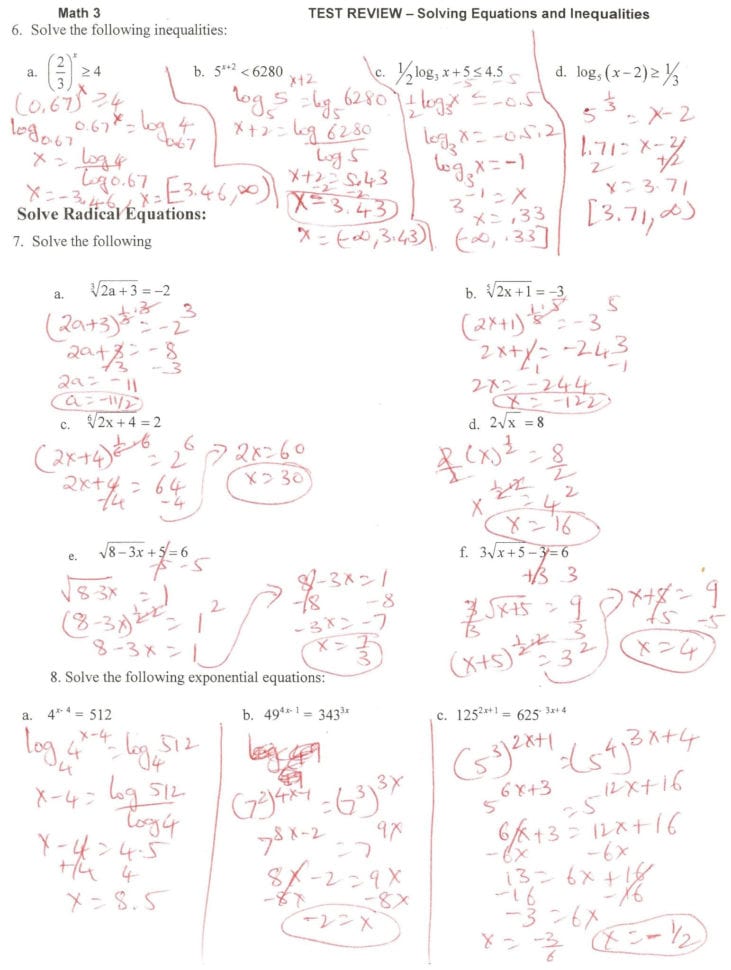 Math 3 TEST REVIEW – Solving Equations and Inequalities
6. Solve the following inequalities:
a. (2/3)^x ≥ 4
(0.67)^x ≥ 4
log_0.67 0.67^x = log_0.67 4
x = log 4 / log 0.67
x = -3.46, x = [-3.46, ∞)
b. 5^(x+2) < 6280
log_5 5^(x+2) = log_5 6280
x+2 = log 6280 / log 5
x+2 = 5.43
-2 -2
x = 3.43
x = (-∞, 3.43)
c. ½ log_3 x + 5 ≤ 4.5
-5 -5
½ log_3 x ≤ -0.5
log_3 x = -0.5·2
log_3 x = -1
3^-1 = x
x = .33
(-∞, .33]
d. log_5 (x – 2) ≥ ⅓
5^(1/3) = x - 2
1.71 = x - 2
2 +2
x = 3.71
[3.71, ∞)
Solve Radical Equations:
7. Solve the following
a. ∛(2a+3) = –2
(2a+3)^(1/3·3) = -2^3
2a+3 = -8
-3 -3
2a = -11
a = -11/2
b. ⁵√(2x+1) = –3
(2x+1)^(1/5·5) = -3^5
2x+1 = -243
-1 -1
2x = -244
x = -122
c. ⁶√(2x+4) = 2
(2x+4)^(1/6·6) = 2^6
2x+4 = 64
-4 -4
2x = 60
x = 30
d. 2√x = 8
2/2 (x)^(1/2) = 8/2
x^(1/2·2) = 4^2
x = 16
e. √(8–3x) + 5 = 6
-5 -5
√(8-3x) = 1
(8-3x)^(1/2·2) = 1^2
8-3x = 1
8-3x = 1
-8 -8
-3x = -7
x = 7/3
f. 3√(x+5) – 3 = 6
+3 3
3/3 √(x+5) = 9/3
(x+5)^(1/2·2) = 3^2
x+5 = 9
-5 -5
x = 4
8. Solve the following exponential equations:
a. 4^(x-4) = 512
log_4 4^(x-4) = log_4 512
x-4 = log 512 / log 4
x-4 = 4.5
+4 4
x = 8.5
b. 49^(4x-1) = 343^(3x)
(7^2)^(4x-1) = (7^3)^(3x)
7^(8x-2) = 7^(9x)
8x-2 = 9x
-8x -8x
-2 = x
c. 125^(2x+1) = 625^(-3x+4)
(5^3)^(2x+1) = (5^4)^(3x+4)
5^(6x+3) = 5^(12x+16)
6x+3 = 12x+16
-6x -6x
13 = 6x+16
-16 -16
-3 = 6x
x = -3/6
x = -1/2